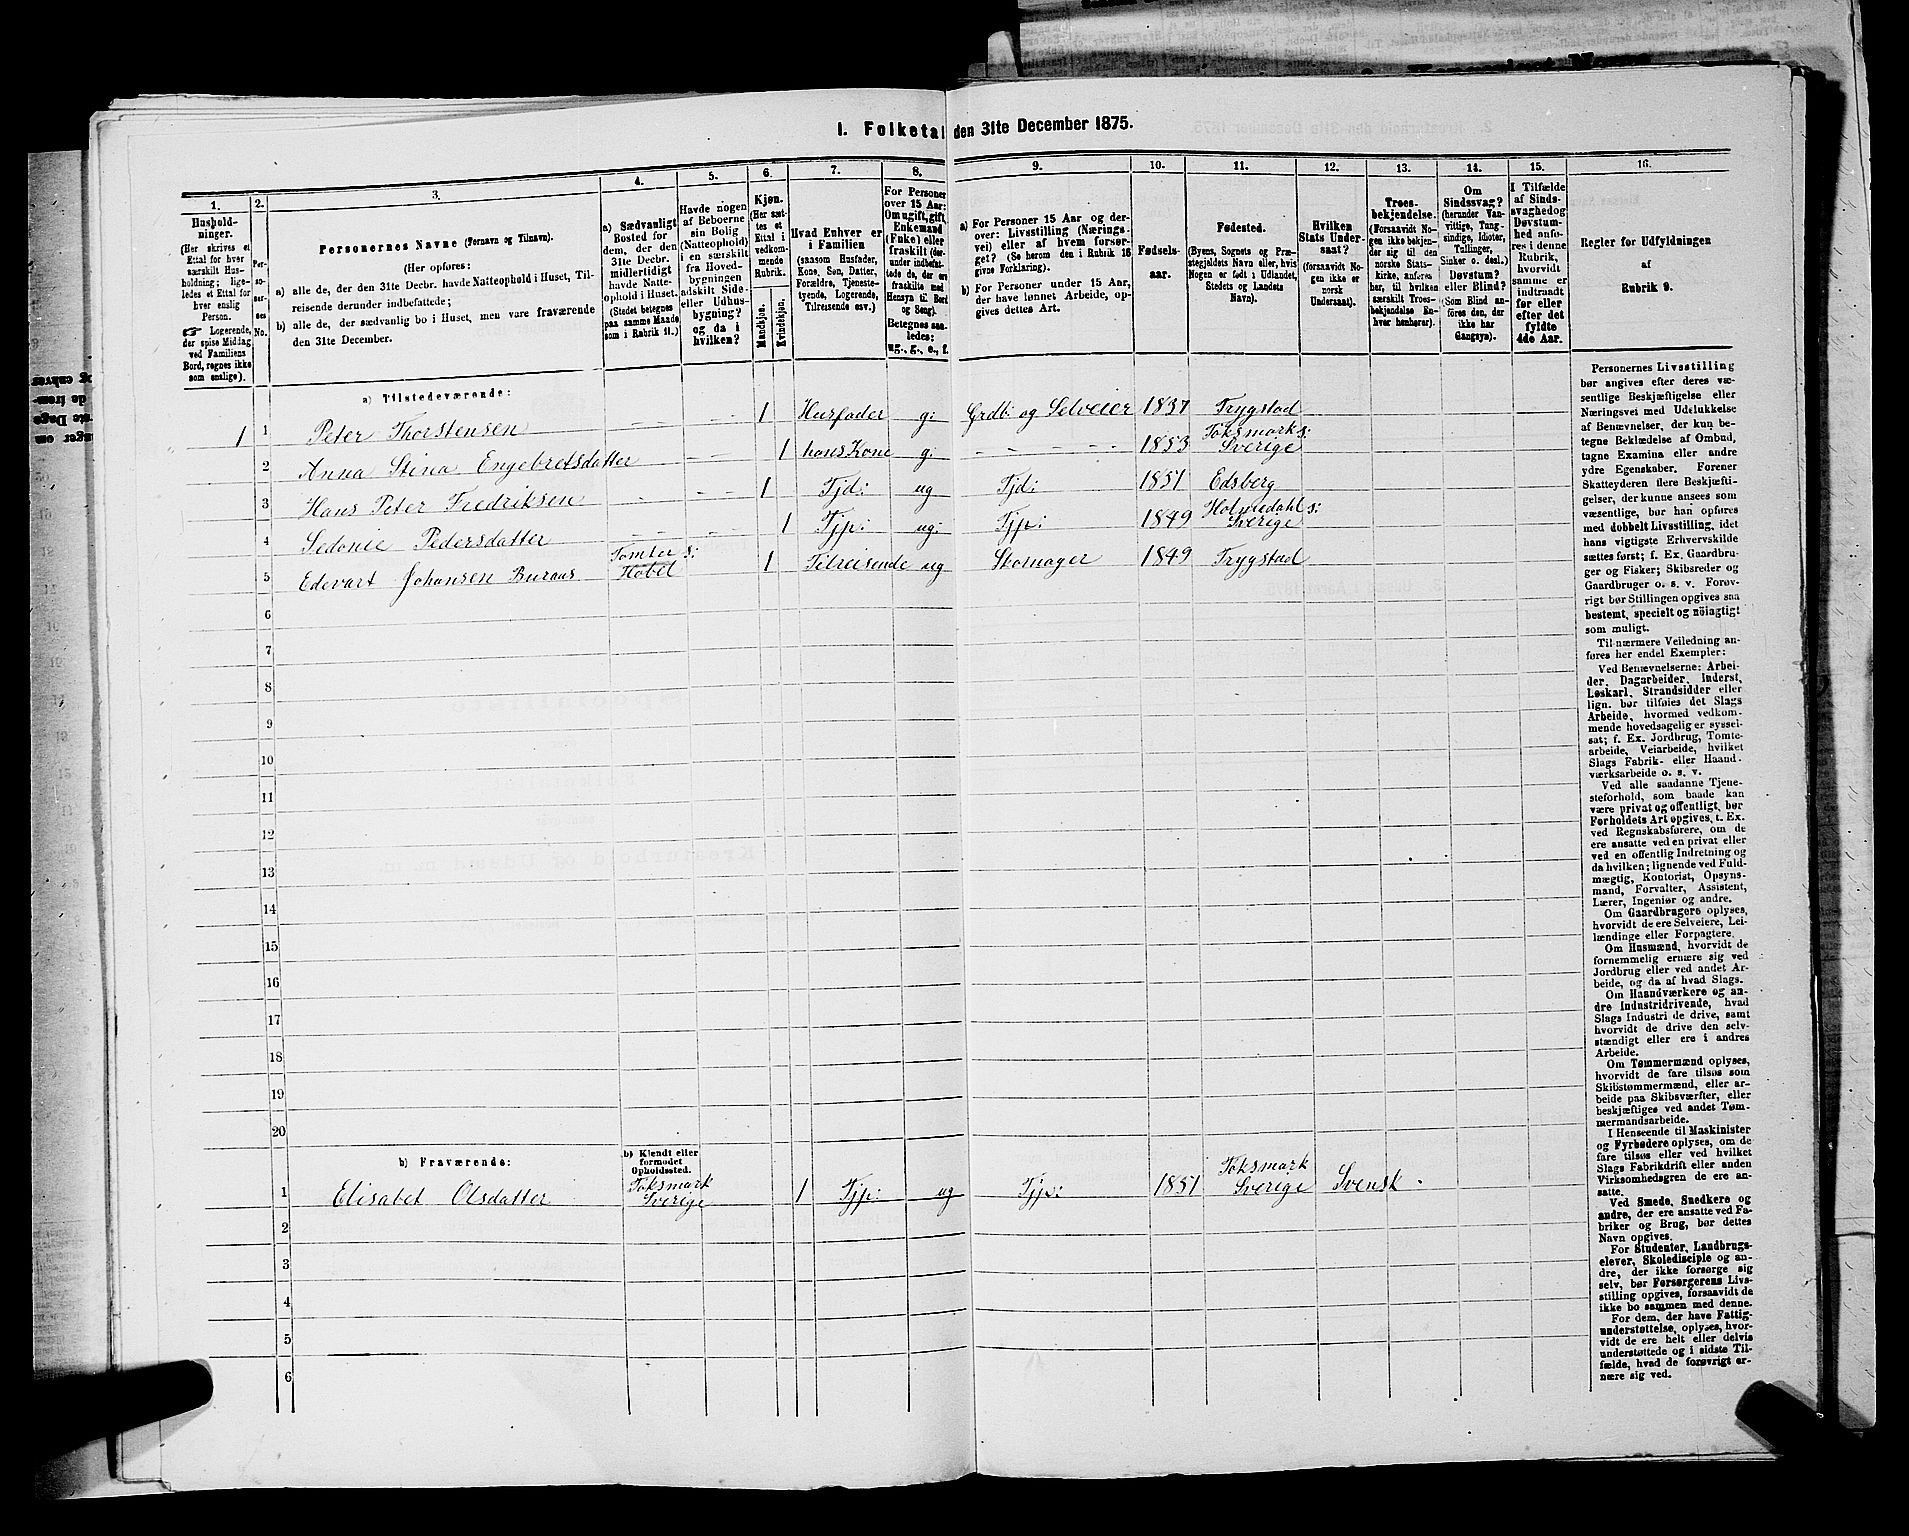 I. Folketal den 31te December 1875.
1. 2. 3. 4. 5. 6. 7. 8. 9. 10. 11. 12. 13. 14. 15. 16.
Hushold-
ninger.
(Her skrives et
Ettal for hver
særskilt Hus-
holdning; lige-
ledes et Ettal for
hver enslig
Person.
☞ Logerende,
der spise Middag
ved Familiens
Bord, regnes ikke
som enslige).
Per-
so-
ner-
nes
No.
Personernes Navne (Fornavn og Tilnavn).
(Her opføres:
a) alle de, der den 31te Decbr. havde Natteophold i Huset, Til-
reisende derunder indbefattede;
b) alle de, der sædvanlig bo i Huset, men vare fraværende
den 31te December.
a) Sædvanligt
Bosted for
dem, der den
31te Decbr.
midlertidigt
havde Natte-
ophold i Huset.
(Stedet betegnes
paa samme Maade
som i Rubrik 11.)
Havde nogen
af Beboerne
sin Bolig
(Natteophold)
i en særskilt
fra Hoved-
bygningen
adskilt Side-
eller Udhus-
bygning?
og da i
hvilken?
Kjøn.
(Her sæt-
tes et
Ettal i
vedkom-
mende
Rubrik.
Mandkjøn.
Kvindekjøn.
Hvad Enhver er
i Familien
(saasom Husfader,
Kone, Søn, Datter,
Forældre, Tjeneste-
tyende, Logerende,
Tilreisende osv.)
For Personer
over 15 Aar:
Om ugift, gift,
Enkemand
(Enke) eller
fraskilt (der-
under indbefat-
tede de, der ere
fraskilte med
Hensyn til Bord
og Seng).
Betegnes saa-
ledes:
ug., g., e., f.
a) For Personer 15 Aar og der-
over: Livsstilling (Nærings-
vei) eller af hvem forsør-
get? (Se herom den i Rubrik 16
givne Forklaring).
b) For Personer under 15 Aar,
der have lønnet Arbeide, op-
gives dettes Art.
Fødsels-
aar.
Fødested.
(Byens, Sognets og Præ-
stegjeldets Navn eller, hvis
Nogen er født i Udlandet,
Stedets og Landets
Navn).
Hvilken
Stats Under-
saat?
(forsaavidt No-
gen ikke er
norsk
Undersaat).
Troes-
bekjendelse.
(Forsaavidt No-
gen ikke bekjen-
der sig til den
norske Stats-
kirke, anføres
her, til hvilken
særskilt Troes-
bekjendelse En-
hver henhører).
Om
Sindssvag?
(herunder Van-
vittige, Tung-
sindige, Idioter,
Tullinger,
Sinker o. desl.)
Døvstum?
eller Blind?
(Som Blind an-
føres den, der
ikke har
Gangsyn).
I Tilfælde
af Sinds-
svaghed og
Døvstum-
hed anfø-
res i denne
Rubrik,
hvorvidt
samme er
indtraadt
før eller
efter det
fyldte
4de Aar.
Regler for Udfyldningen
af
Rubrik 9.
a) Tilstedeværende:
1 1 Peter Thorstensen 1 Husfader g: Grdb: og Selveier 1837 Trygstad
2 Anna Stina Engebretsdatter 1 hans Kone g: 1853 Töksmark s: Sverige
3 Hans Peter Fredriksen 1 Tjd: ug Tjd: 1851 Edsberg
4 Sedonie Pedersdatter 1 Tjp: ug: Tjp: 1849 Holmedahl s: Sverige
5 Edevart Johansen Buraas Tomter s: Høbøl 1 Tilreisende ug Skomager 1849 Trygstad
6
7
8
9
10
11
12
13
14
15
16
17
18
19
20
b) Fraværende:
b) Kjendt eller
formodet
Opholdssted.
1 Elisabet Olsdatter Töksmark Sverige 1 Tjp: ug Tjp: 1851 Töksmark Sverige Svensk
2
3
4
5
6
Personernes Livsstilling
bør angives efter deres væ-
sentlige Beskjæftigelse eller
Næringsvei med Udelukkelse
af Benævnelser, der kun be-
tegne Beklædelse af Ombud,
tagne Examina eller andre
ydre Egenskaber. Forener
Skatteyderen flere Beskjæfti-
gelser, der kunne ansees som
væsentlige, bør han opføres
med dobbelt Livsstilling, idet
hans vigtigste Erhvervskilde
sættes først; f. Ex. Gaardbru-
ger og Fisker; Skibsreder og
Gaardbruger o. s. v. Forøv-
rigt bør Stillingen opgives saa
bestemt, specielt og nöiagtigt
som muligt.
Til nærmere Veiledning an-
føres her endel Exempler:
Ved Benævnelserne: Arbei-
der, Dagarbeider, Inderst,
Løskarl, Strandsidder eller
lign. bør tilføies det Slags
Arbeide, hvormed vedkom-
mende hovedsagelig er syssel-
sat; f. Ex. Jordbrug, Tomte-
arbeide, Veiarbeide, hvilket
Slags Fabrik- eller Haand-
værksarbeide o. s. v.
Ved alle saadanne Tjene-
steforhold, som baade kan
være privat og offentligt, bør
Forholdets Art opgives, t. Ex.
ved Regnskabsførere, om de
ere ansatte ved en privat eller
ved en offentlig Indretning og
da hvilken; lignende ved Fuld-
mægtig, Kontorist, Opsyns-
mand, Forvalter, Assistent,
Lærer, Ingeniør og andre.
Om Gaardbrugere oplyses,
hvorvidt de ere Selveiere, Lei-
lændinge eller Forpagtere.
Om Husmænd, hvorvidt de
fornemmelig ernære sig ved
Jordbrug eller ved andet Ar-
beide, og da af hvad Slags.
Om Haandværkere og an-
dre Industridrivende, hvad
Slags Industri de drive, samt
hvorvidt de drive den selv-
stændigt eller ere i andres
Arbeide.
Om Tømmermænd oplyses,
hvorvidt de fare tilsøs som
Skibstømmermænd, eller ar-
beide paa Skibsværfter, eller
beskjæftiges ved andet Tøm-
mermandsarbeide.
I Henseende til Maskinister
og Fyrbødere oplyses, om de
fare tilsøs eller ved hvilket
Slags Fabrikdrift eller anden
Virksomhedsgren de ere an-
satte.
Ved Smede, Snedkere og
andre, der ere ansatte ved Fa-
briker og Brug, bør dettes
Navn opgives.
For Studenter, Landbrugs-
elever, Skoledisciple og an-
dre, der ikke forsørge sig
selv, bør Forsørgerens Livs-
stilling opgives, forsaavidt de
ikke bo sammen med denne.
For dem, der have Fattig-
understøttelse, oplyses, hvor-
vidt de ere helt eller delvis
understøttede og i sidste Til-
fælde, hvad de forøvrigt er-
nære sig ved.